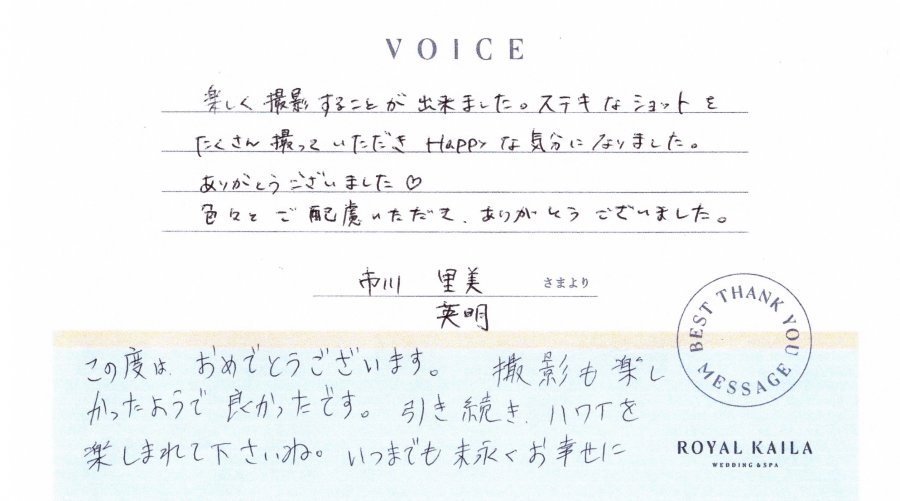 VOICE
楽しく撮影することが出来ました。ステキなショットを
たくさん撮っていただき Happyな気分になりました。
ありがとうございました♡
色々とご配慮いただき、ありがとうございました。
市川 里美 さまより
英明
BEST THANK YOU MESSAGE
この度は、おめでとうございます。 撮影も楽し
かったようで良かったです。引き続き、ハワイを
楽しまれて下さいね。いつまでも末永くお幸せに
ROYAL KAILA
WEDDING & SPA